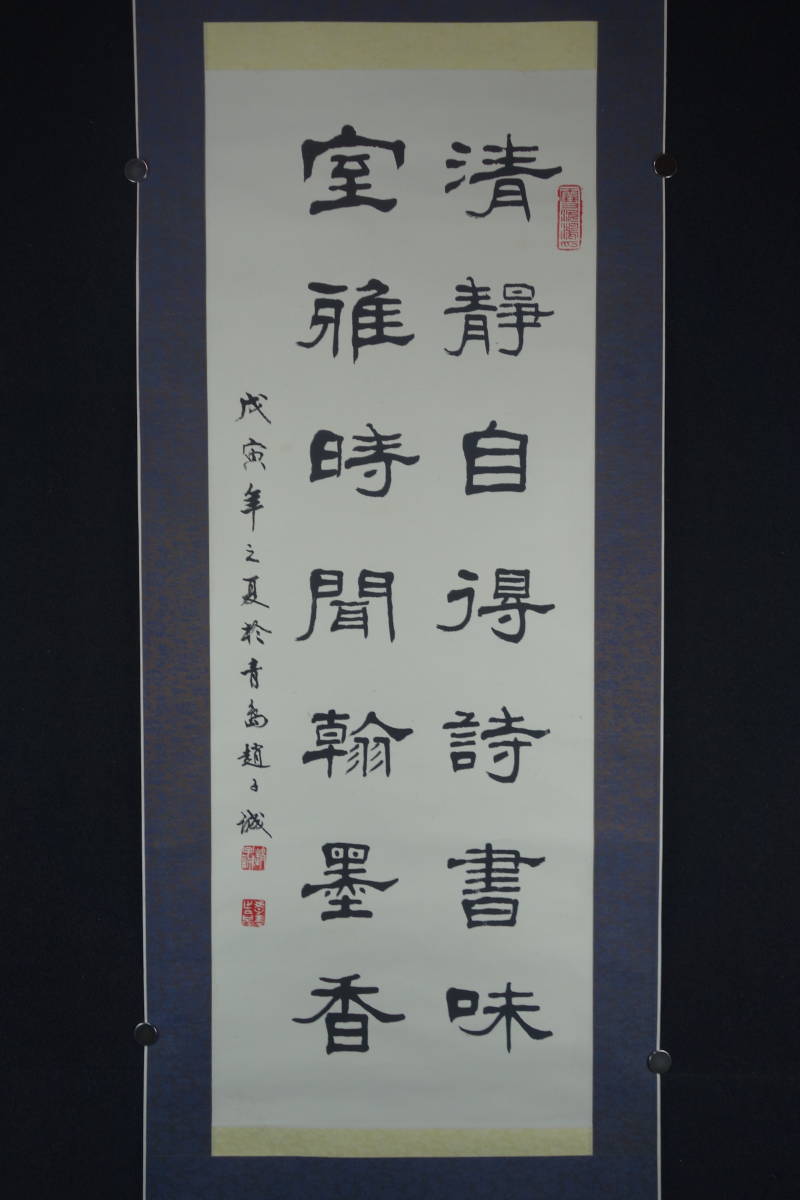 清靜自得詩書味
室雅時聞翰墨香
戊寅年之夏於青島趙子誠